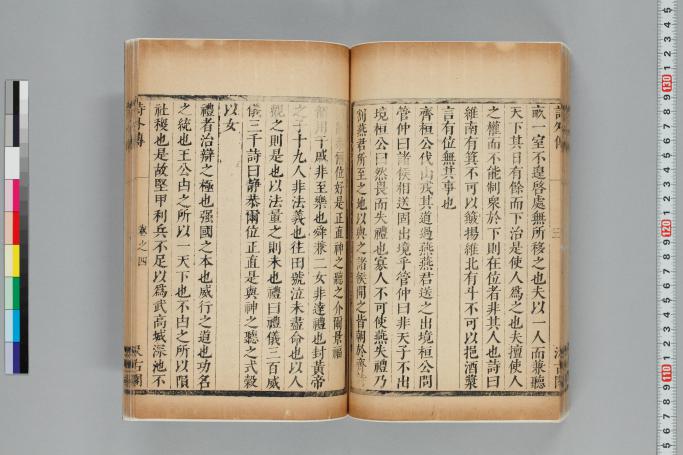 畝一室不遑啓處無所移之也夫以一人而兼聽
天下其日有餘而下治是使人爲之也夫擅使人
之權而不能制衆於下則在位者非其人也詩曰
維南有箕不可以簸揚維北有斗不可以挹酒漿
言有位無其事也
齊桓公伐山戎其道過燕燕君送之出境桓公問
管仲曰諸侯相送固出境乎管仲曰非天子不出
境桓公曰然畏而失禮也寡人不可使燕失禮乃
割燕君所至之地以與之諸侯聞之皆朝於齊詩
爾位好是正直神之聽之介爾景福
用干戚非至樂也舜兼二女非達禮也封黃帝
之子十九人非法義也往田號泣未盡命也以人
觀之則是也以法量之則未也禮曰禮儀三百威
儀三千詩曰靜恭爾位正直是與神之聽之式穀
以女
禮者治辯之極也强國之本也威行之道也功名
之統也王公由之所以一天下也不由之所以隕
社稷也是故堅甲利兵不足以爲武高城深池不
詩外傳
卷之四
汲古閣
三
汲古閣
130
120
110